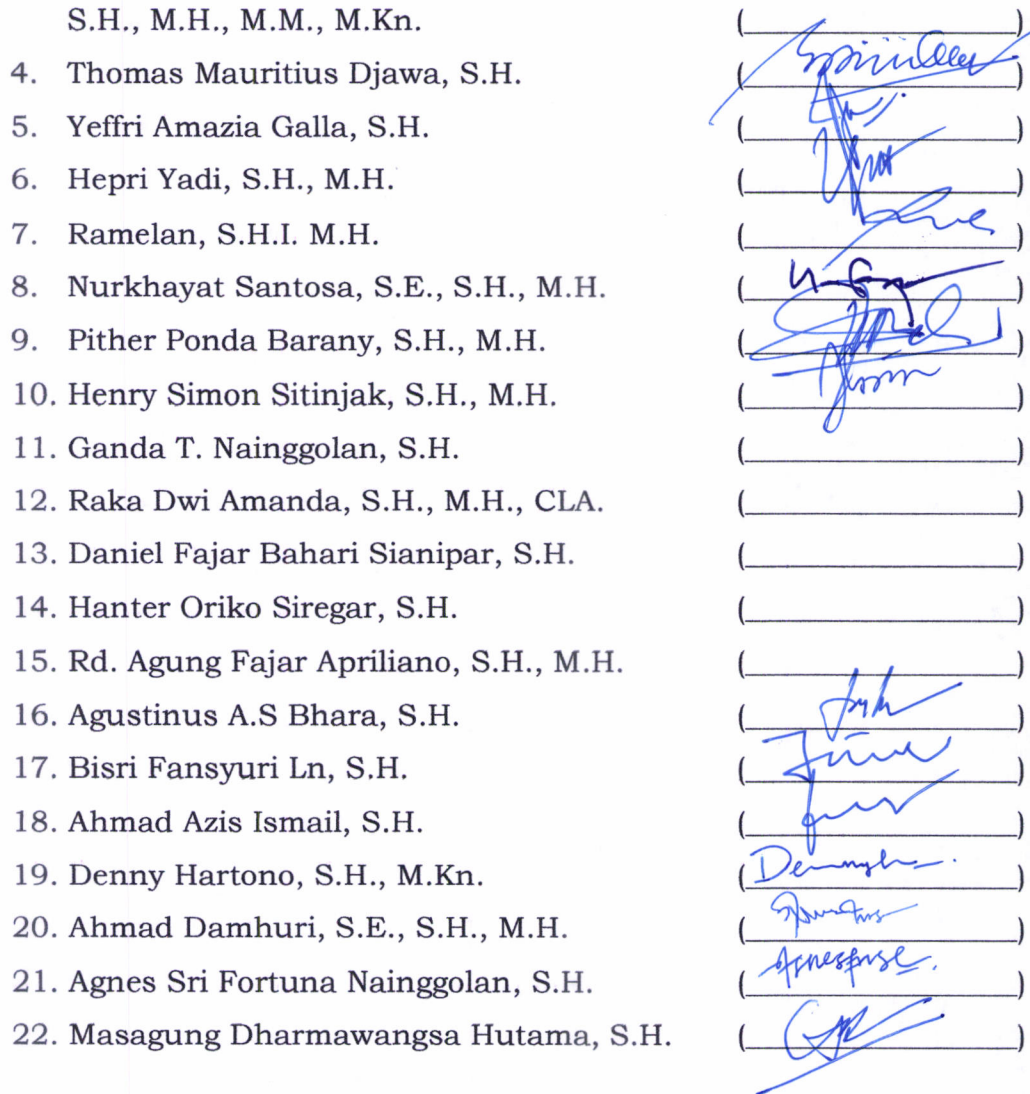 S.H., M.H., M.M., M.Kn. (____________)
4. Thomas Mauritius Djawa, S.H. (____________)
5. Yeffri Amazia Galla, S.H. (____________)
6. Hepri Yadi, S.H., M.H. (____________)
7. Ramelan, S.H.I. M.H. (____________)
8. Nurkhayat Santosa, S.E., S.H., M.H. (____________)
9. Pither Ponda Barany, S.H., M.H. (____________)
10. Henry Simon Sitinjak, S.H., M.H. (____________)
11. Ganda T. Nainggolan, S.H. (____________)
12. Raka Dwi Amanda, S.H., M.H., CLA. (____________)
13. Daniel Fajar Bahari Sianipar, S.H. (____________)
14. Hanter Oriko Siregar, S.H. (____________)
15. Rd. Agung Fajar Apriliano, S.H., M.H. (____________)
16. Agustinus A.S Bhara, S.H. (____________)
17. Bisri Fansyuri Ln, S.H. (____________)
18. Ahmad Azis Ismail, S.H. (____________)
19. Denny Hartono, S.H., M.Kn. (____________)
20. Ahmad Damhuri, S.E., S.H., M.H. (____________)
21. Agnes Sri Fortuna Nainggolan, S.H. (____________)
22. Masagung Dharmawangsa Hutama, S.H. (____________)